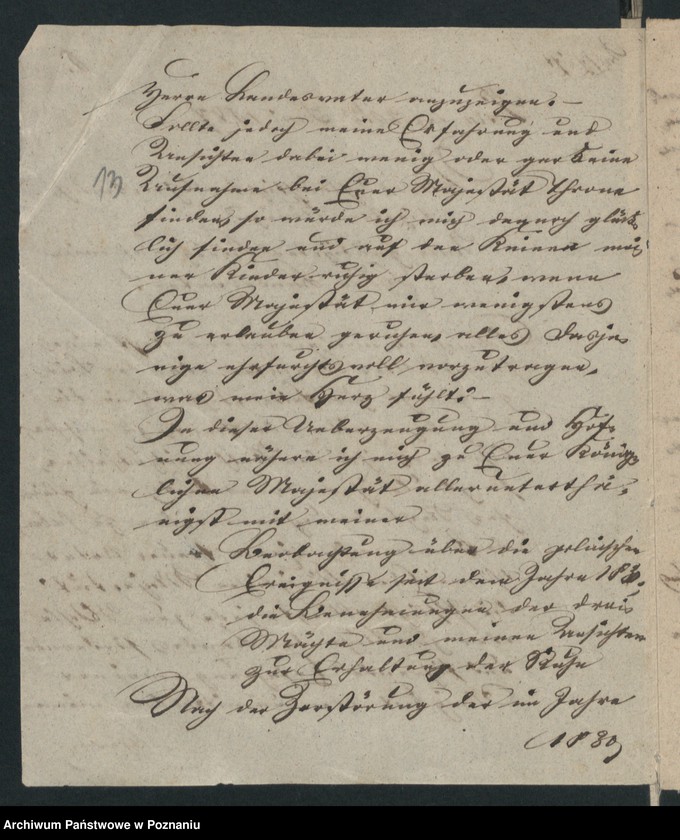 Herrn Landesvater anzuzeigen. —
Sollte jedoch meine Erfahrung und
Ansichten dabei wenig oder gar keine
13
Aufnahme bei Euer Majestät Throne
finden, so würde ich mich dennoch glück-
lich finden und auf den Knieen mei-
ner Kinder ruhig sterben, wenn
Euer Majestät mir wenigstens
zu erlauben geruhen, alles dasje-
nige ehrfurchtsvoll vorzutragen,
was mein Herz fühlt. —
In dieser Ueberzeugung und Hof-
nung nähere ich mich zu Euer König-
lichen Majestät allerunterthä-
nigst mit meiner
Beobachtung über die polnischen
Ereignisse seit dem Jahre
die der drei
Mächte und meinen Ansichten
zur Erhaltung der Ruhe
Nach der Zerstörung der im Jahre
1830
Archiwum Państwowe w Poznaniu